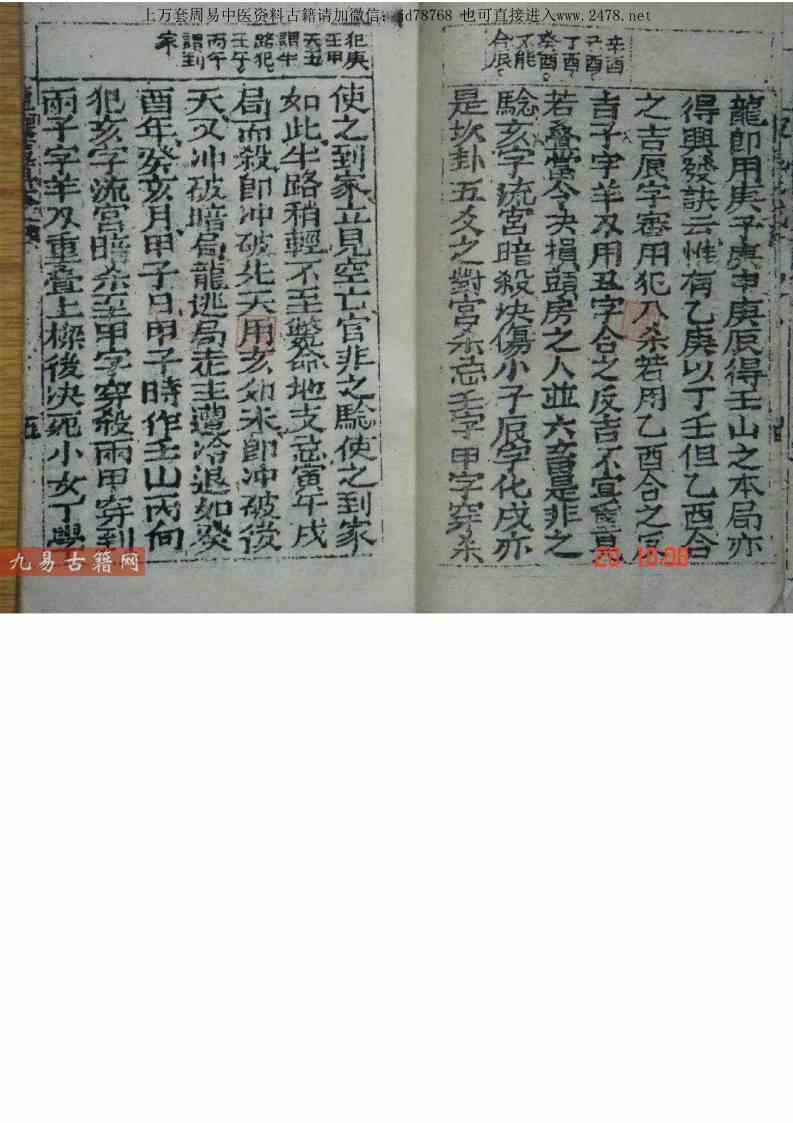 上万套周易中医资料古籍请加微信: jd78768 也可直接进入www.2478.net
辛酉
丑酉
丁酉
癸酉
不能
合辰
龍即用庚子庚申庚辰得壬山之本局亦
得興發訣云惟有乙庚以丁壬但乙酉合
之吉辰字審用犯八杀若用乙酉合之反
吉子字羊刃用丑字合之反吉不宜
若叠當令决損頭房之人並六畜是非之
驗亥字流宮暗殺块傷小子辰字化戌亦
是坎卦五爻之對宮杀忌壬字甲字穿杀
犯庚
壬甲
天丑
謂半
路犯
壬午
丙午
謂到
家
使之到家立見空亡官非之驗使之到家
如此半路稍輕不至斃命地支忌寅午戌
局而殺即冲破先天用亥如未即冲破後
天又冲破暗局龍逃局走主遭冷退如癸
酉年癸亥月甲子日甲子時作壬山丙向
犯亥字流宮暗杀至甲字穿殺兩甲穿到
兩子字羊刃重叠上樑後决死小女丁學
五
九易古籍网
20 10:08